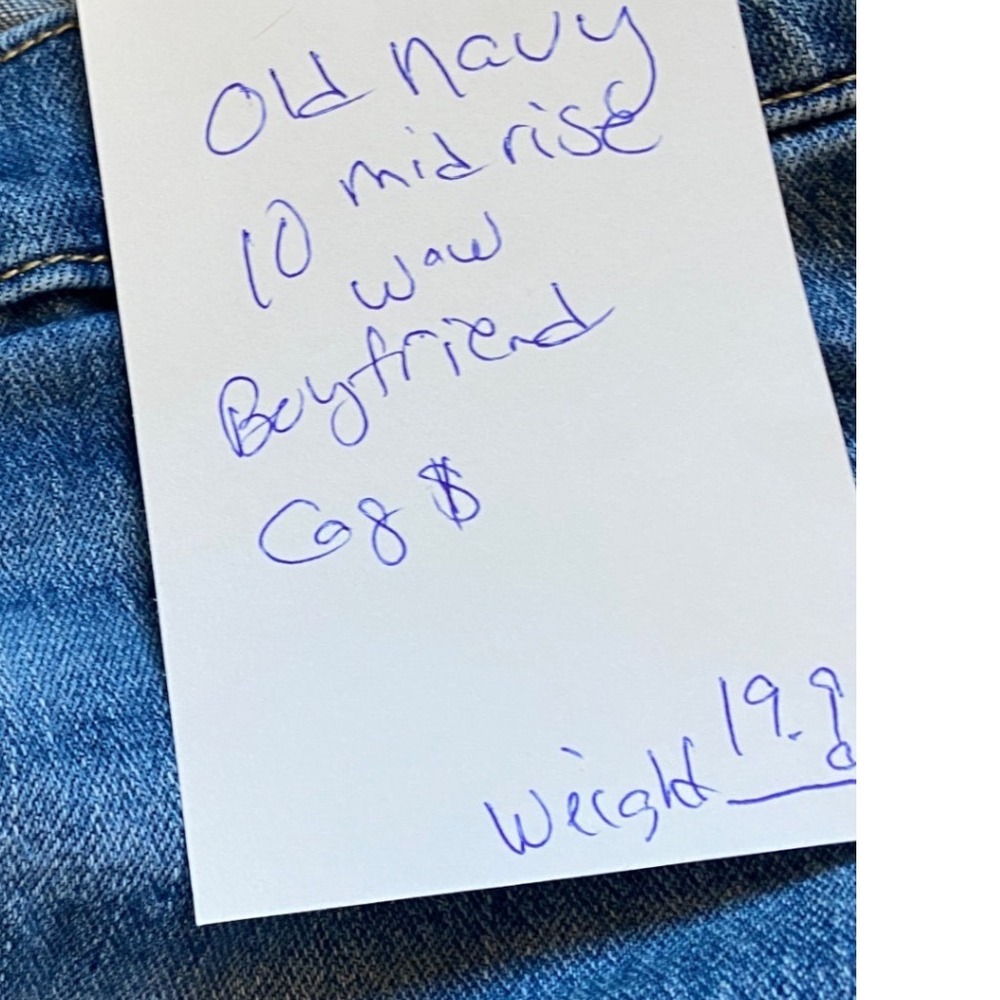 Old navy
10 mid rise
waw
Boyfriend
Cog $
Weight 19.9